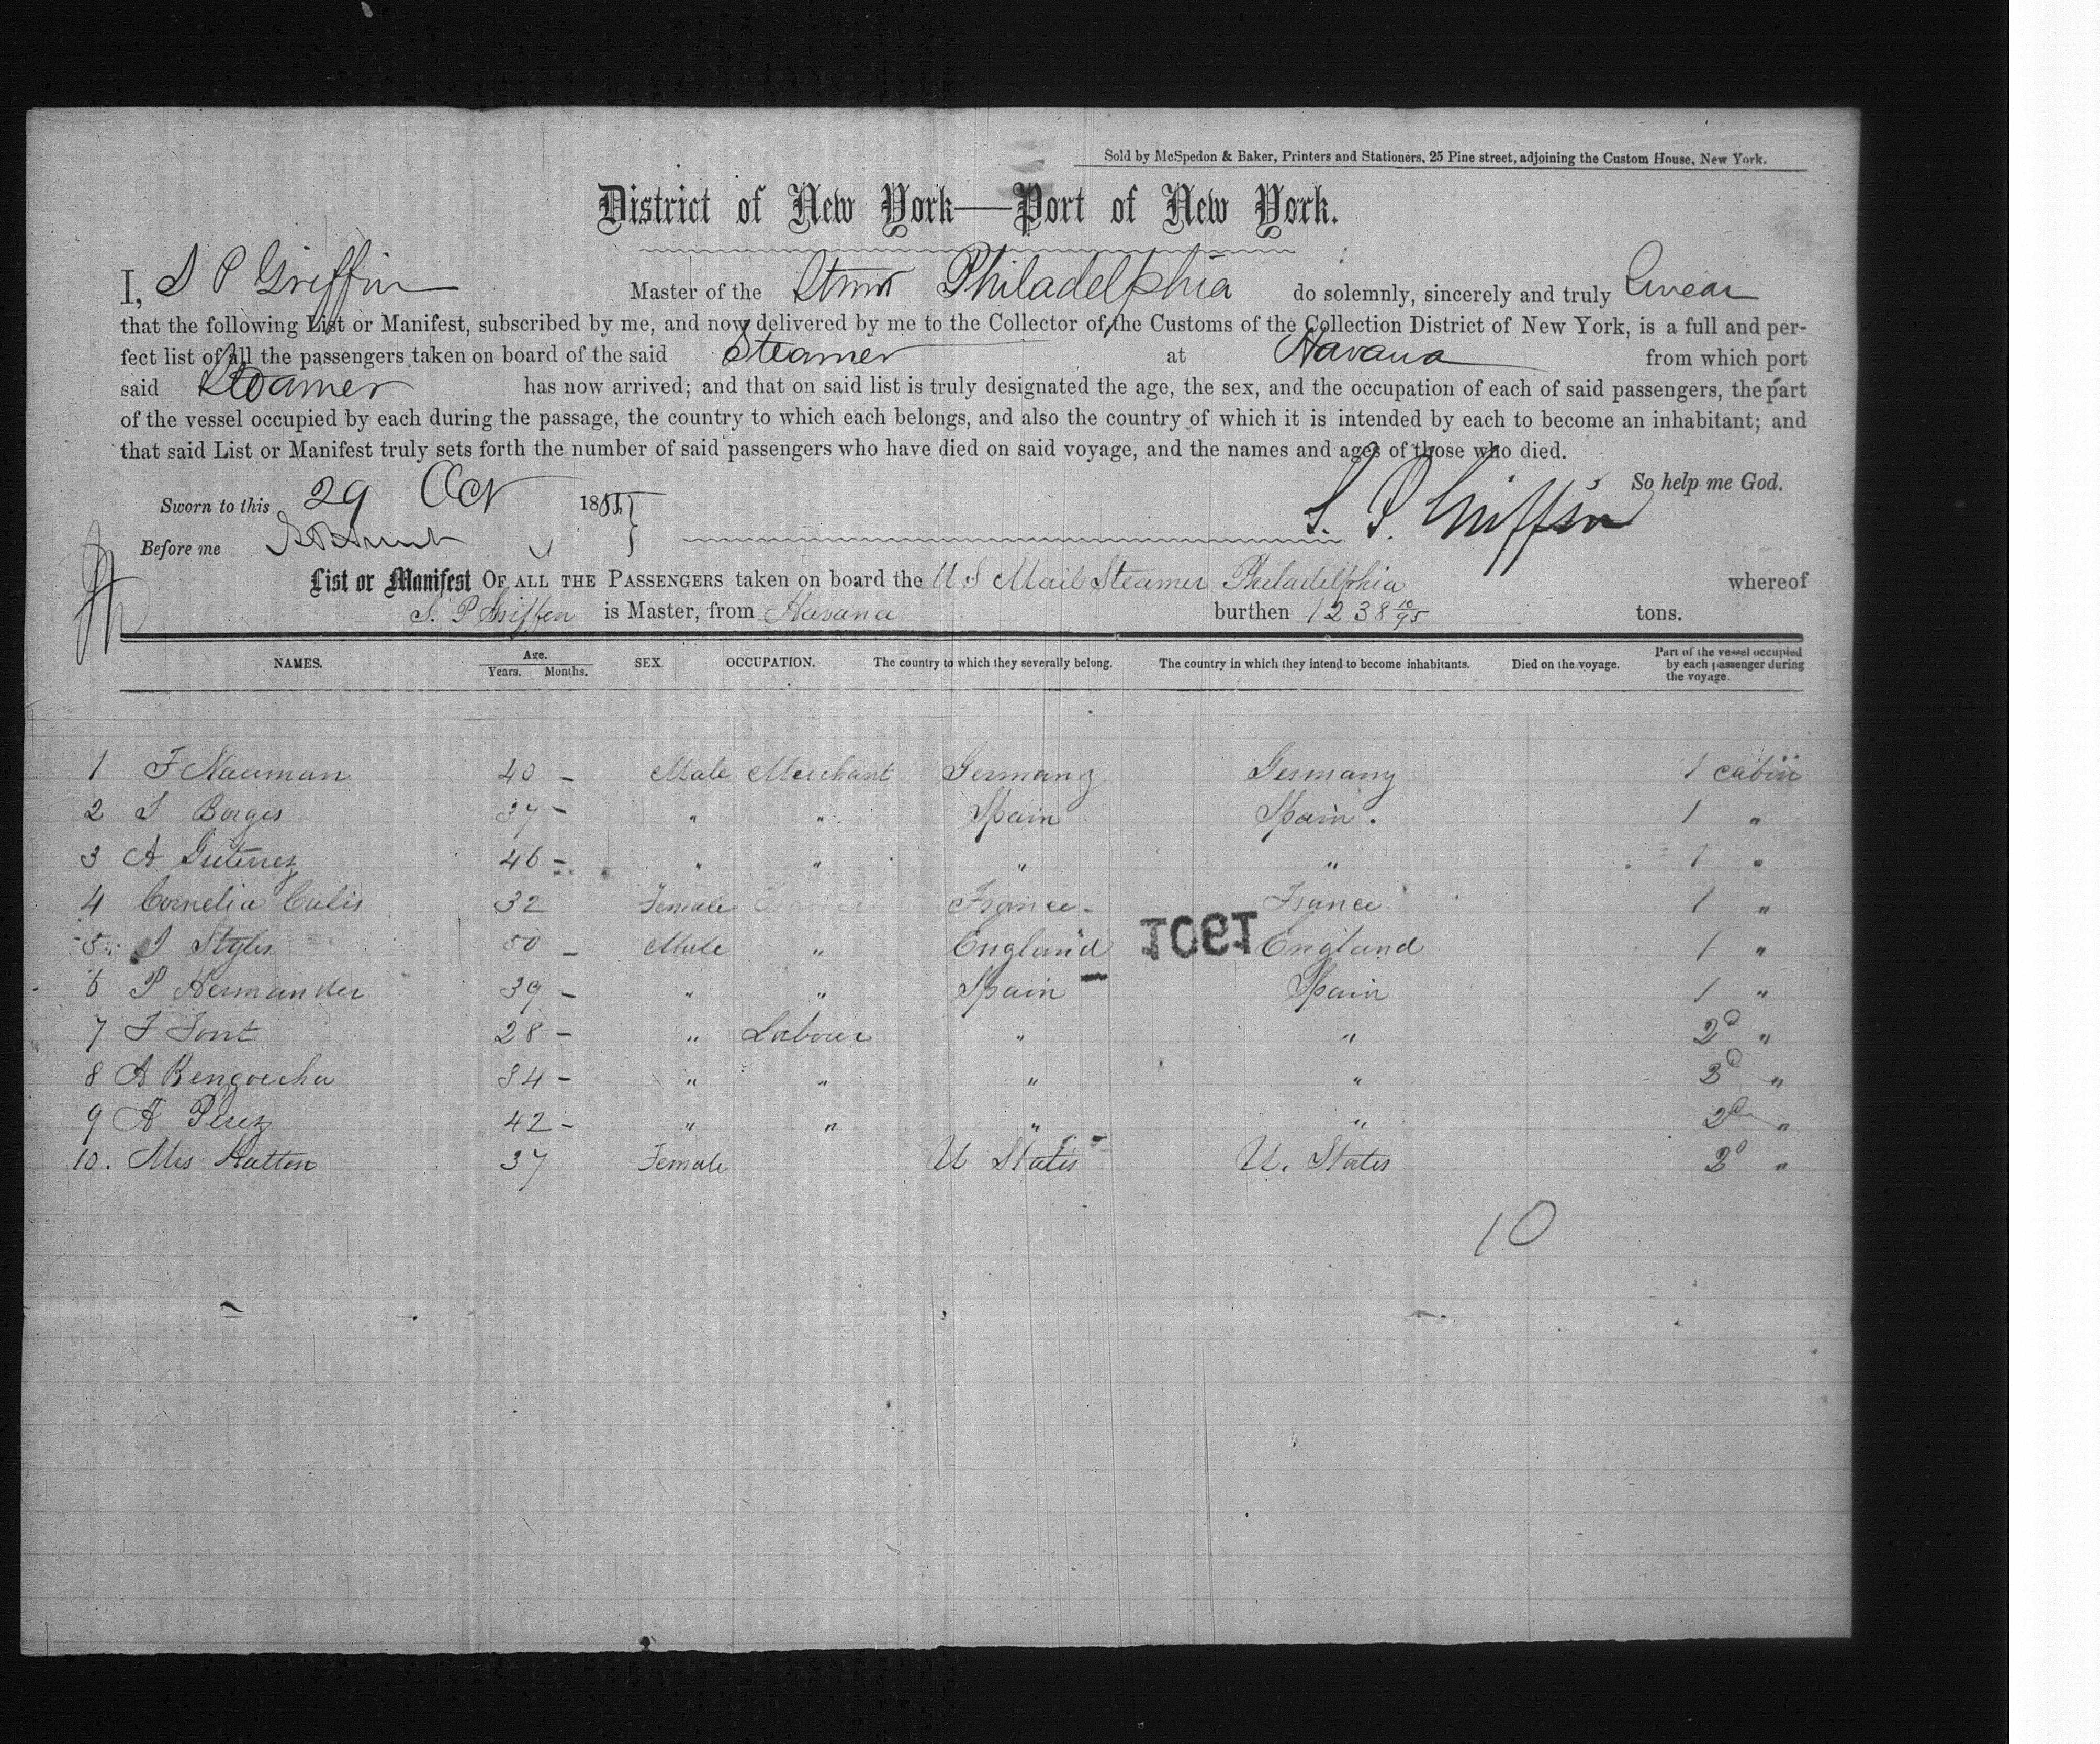 Sold by McSpedon & Baker, Printers and Stationers, 25 Pine street, adjoining the Custom House, New York.
District of New York—Port of New York.
I, S P Griffin Master of the Stmr Philadelphia do solemnly, sincerely and truly Swear
that the following List or Manifest, subscribed by me, and now delivered by me to the Collector of the Customs of the Collection District of New York, is a full and per-
fect list of all the passengers taken on board of the said Steamer at Havana from which port
said Steamer has now arrived; and that on said list is truly designated the age, the sex, and the occupation of each of said passengers, the part
of the vessel occupied by each during the passage, the country to which each belongs, and also the country of which it is intended by each to become an inhabitant; and
that said List or Manifest truly sets forth the number of said passengers who have died on said voyage, and the names and ages of those who died.
So help me God.
Sworn to this 29 Oct 185
S. P. Griffin
Before me
List or Manifest OF ALL THE PASSENGERS taken on board the U S Mail Steamer Philadelphia whereof
S. P Griffen is Master, from Havana burthen 1238 10/95 tons.
NAMES. Age. Years. Months. SEX. OCCUPATION. The country to which they severally belong. The country in which they intend to become inhabitants. Died on the voyage. Part of the vessel occupied by each passenger during the voyage.
1 F Nauman 40 - Male Merchant Germany Germany 1 cabin
2 S Borges 37 - " " Spain Spain. 1 "
3 A Guterrez 46 - " " " " 1 "
4 Cornelia Culis 32 Female France - France 1 "
5 Styles 50 - Male " England England 1 "
1901
6 P Hernander 39 - " " Spain Spain 1 "
7 F Font 28 - " Labour " " 2d "
8 A Bengoechea 34 - " " " " 2d "
9 A Perez 42 - " " " " 2d "
10. Mrs Hatton 37 Female U States U. States 2d "
10